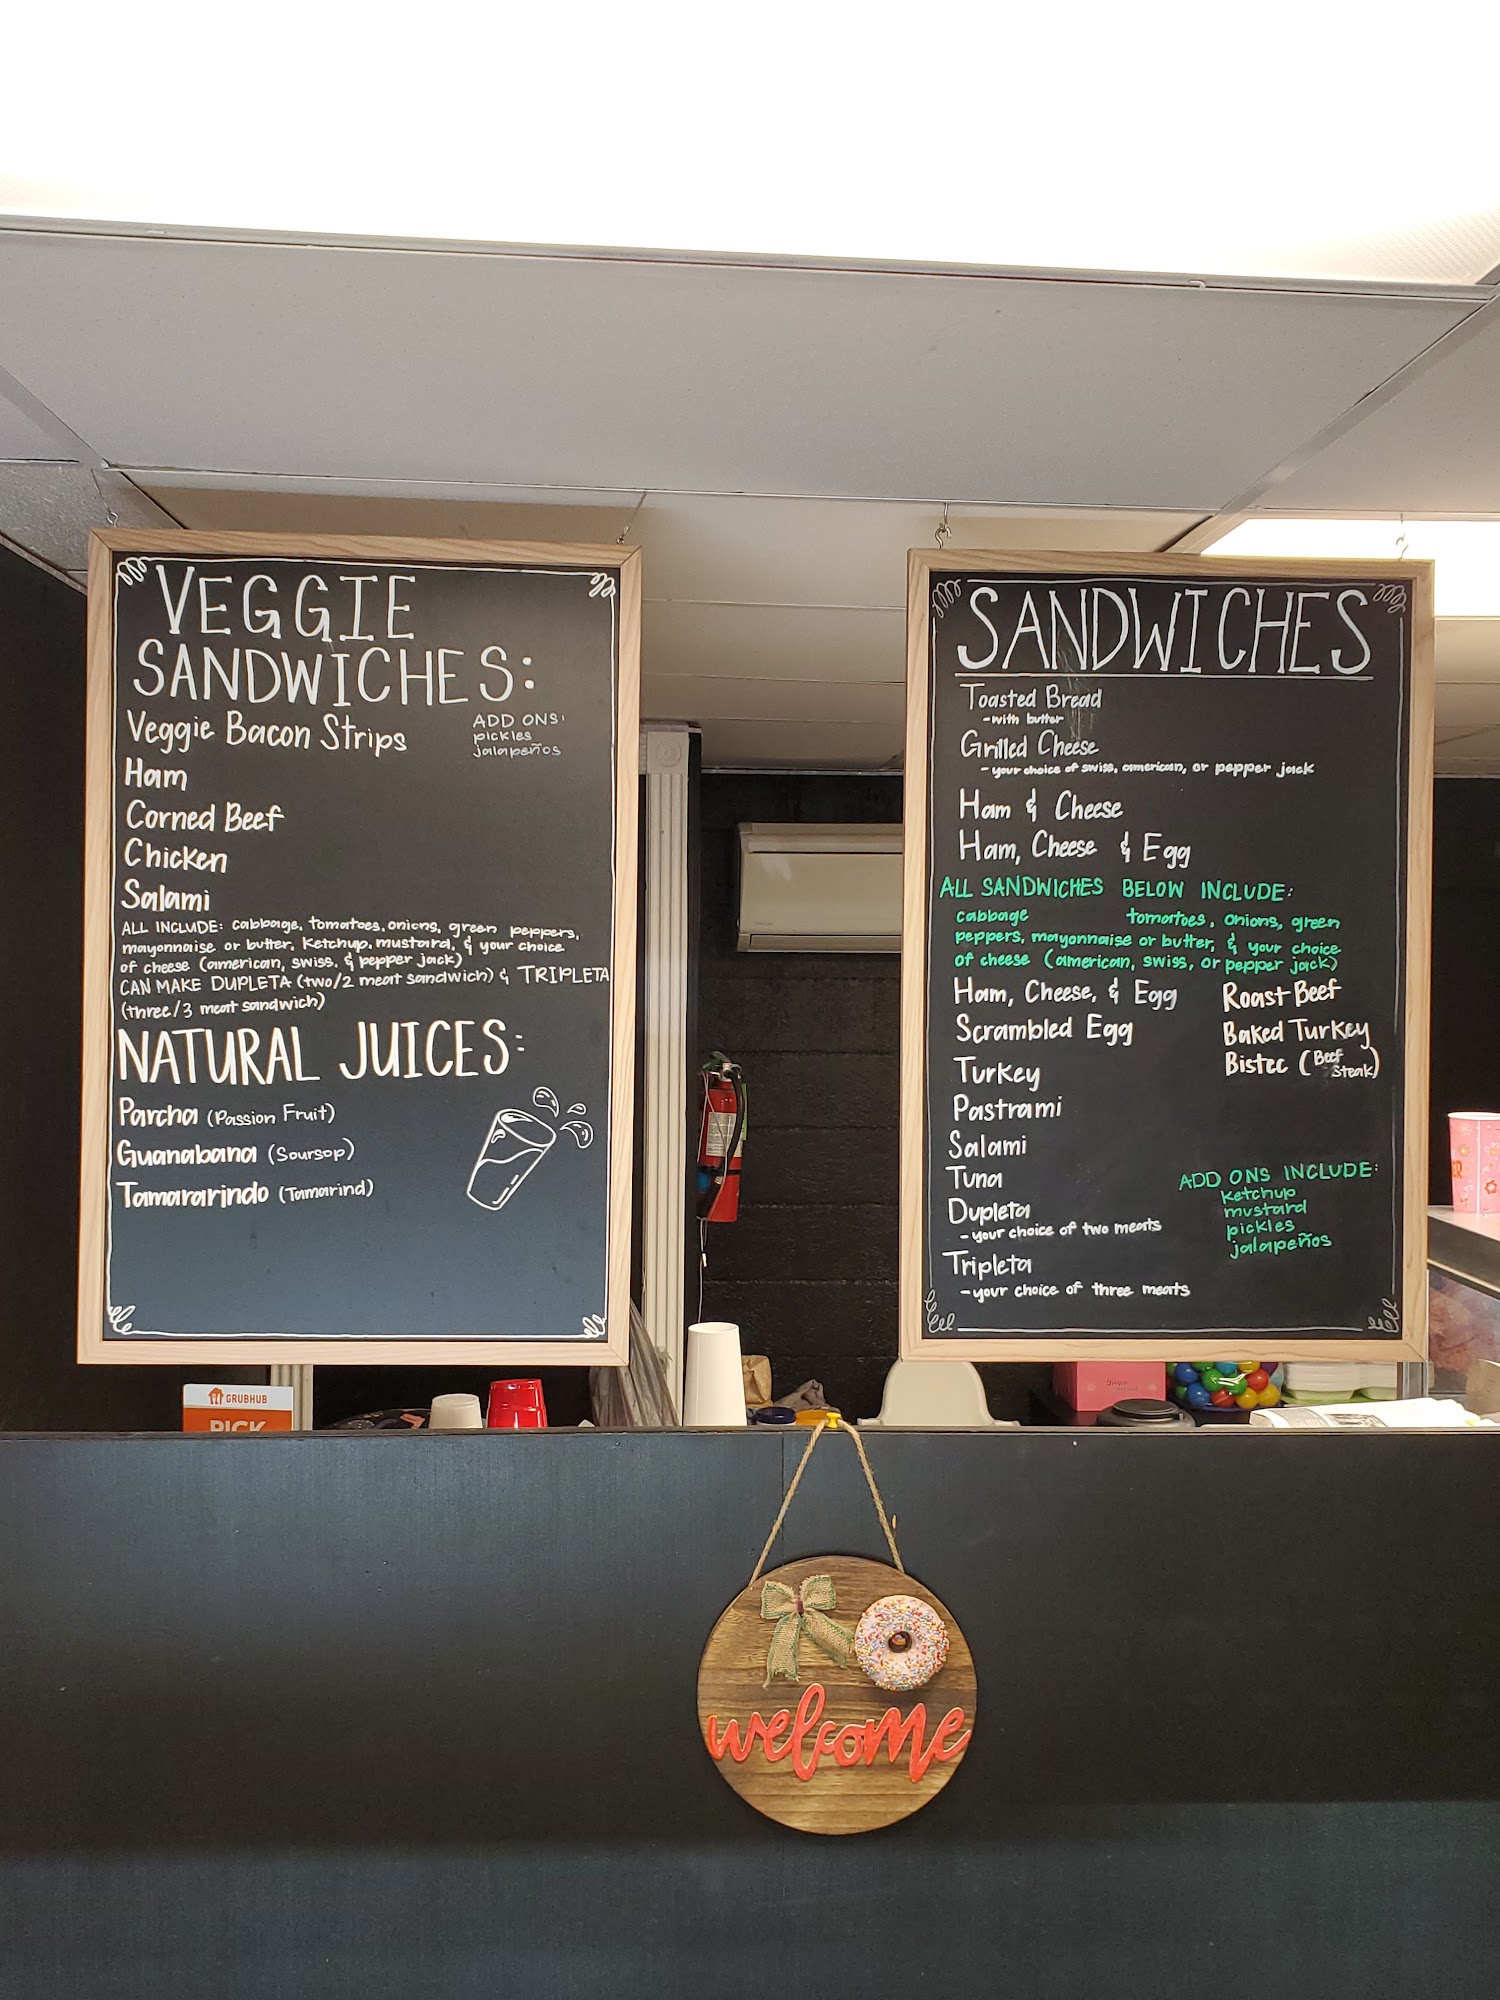 VEGGIE
SANDWICHES:
Veggie Bacon Strips
ADD ONS:
pickles
jalapeños
Ham
Corned Beef
Chicken
Salami
ALL INCLUDE: cabbage, tomatoes, onions, green peppers,
mayonnaise or butter, ketchup, mustard, & your choice
of cheese (american, swiss, & pepper jack)
CAN MAKE DUPLETA (two/2 meat sandwich) & TRIPLETA
(three/3 meat sandwich)
NATURAL JUICES:
Parcha (Passion Fruit)
Guanabana (Soursop)
Tamararindo (Tamarind)
SANDWICHES
Toasted Bread
-with butter
Grilled Cheese
-your choice of swiss, american, or pepper jack
Ham & Cheese
Ham, Cheese & Egg
ALL SANDWICHES BELOW INCLUDE:
cabbage tomatoes, onions, green
peppers, mayonnaise or butter, & your choice
of cheese (american, swiss, or pepper jack)
Ham, Cheese, & Egg
Scrambled Egg
Turkey
Pastrami
Salami
Tuna
Dupleta
-your choice of two meats
Tripleta
-your choice of three meats
Roast Beef
Baked Turkey
Bistec (Beef
Steak)
ADD ONS INCLUDE:
ketchup
mustard
pickles
jalapeños
GRUBHUB
PICK
welcome